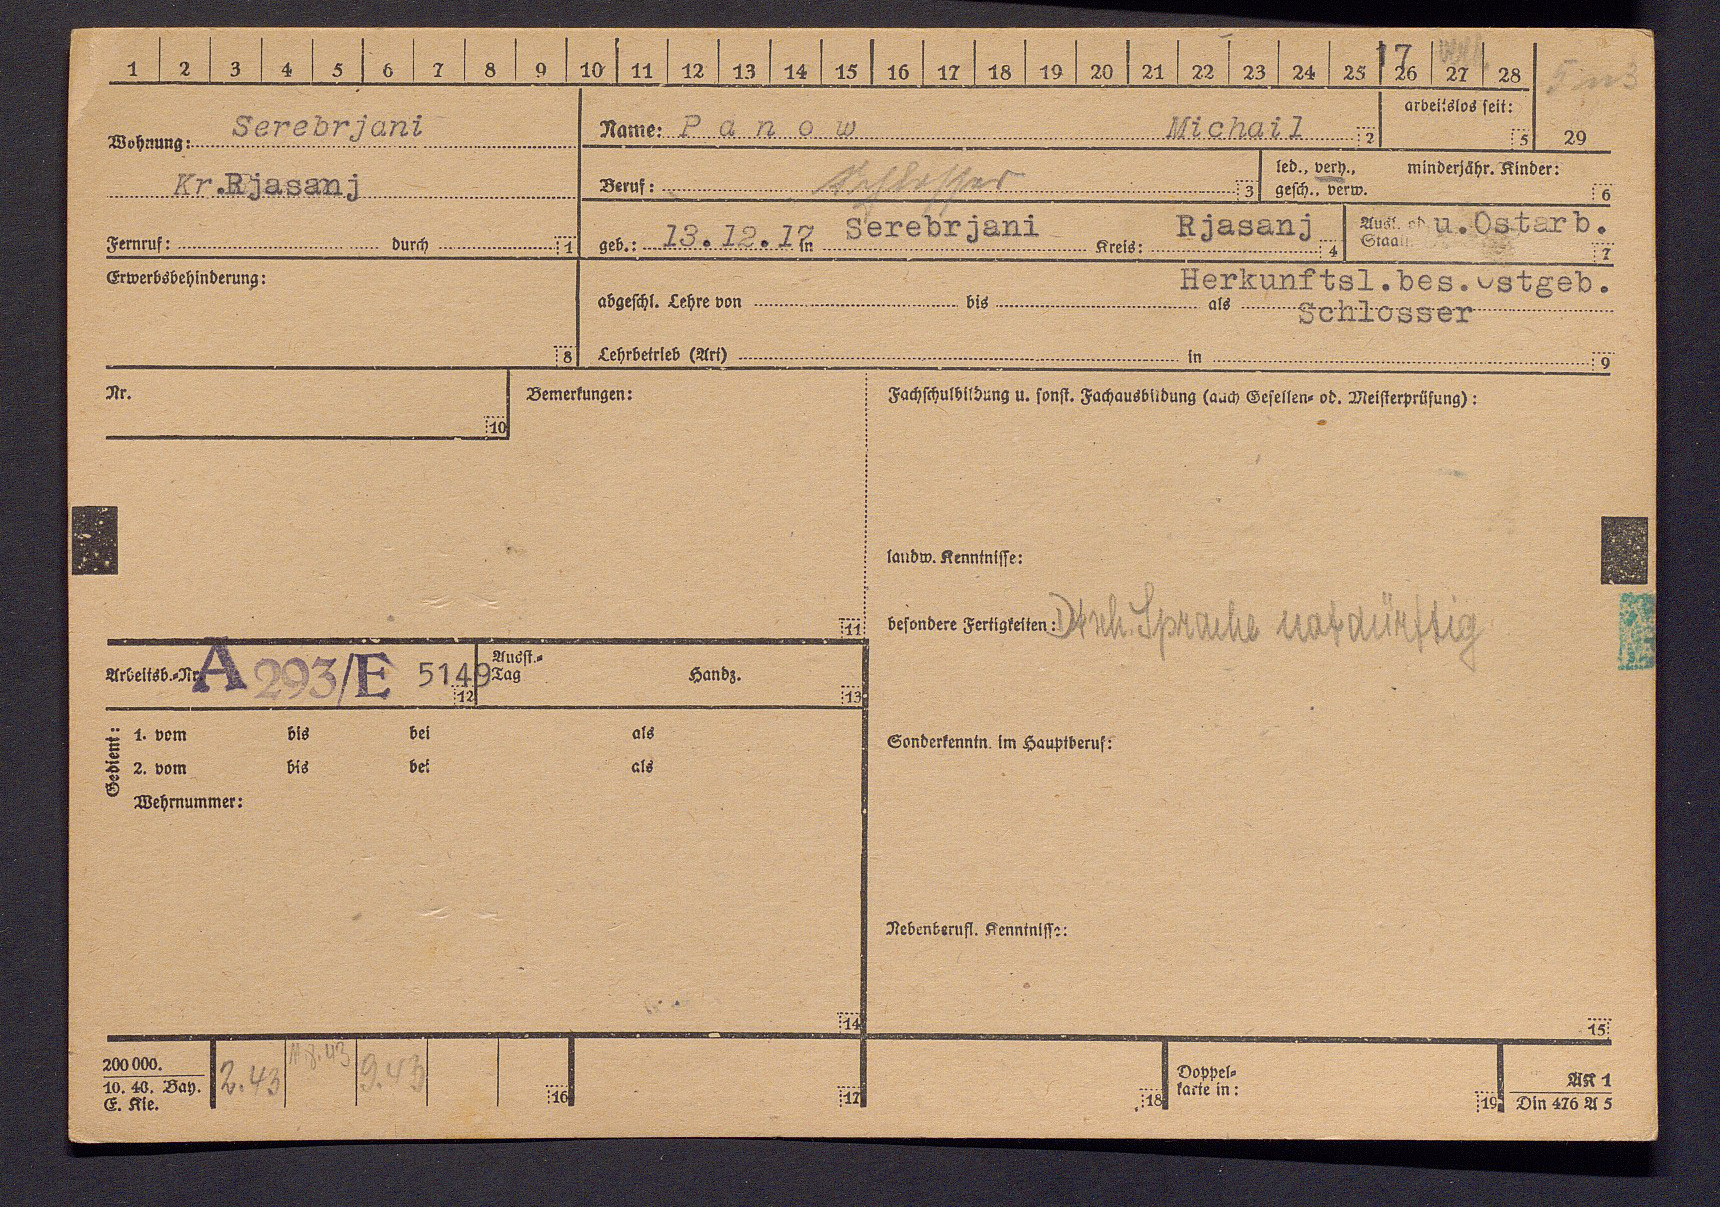 1 2 3 4 5 6 7 8 9 10 11 12 13 14 15 16 17 18 19 20 21 22 23 24 25 26 27 28
17
Wohnung: Serebrjani
Kr.Rjasanj
Fernruf: durch 1
Name: Panow Michail 2
arbeitslos seit: 5
29
Beruf: Schlosser 3
led., verh., minderjähr. Kinder:
gesch., verw. 6
geb.: 13.12.17 in Serebrjani Kreis: Rjasanj 4
Ausl. od. u.Ostarb.
Staatl. 7
Erwerbsbehinderung:
8
Herkunftsl.bes.Ostgeb.
abgeschl. Lehre von bis als
Schlosser
Lehrbetrieb (Art) in 9
Nr.
10
Bemerkungen:
11
Fachschulbildung u. sonst. Fachausbildung (auch Gesellen- od. Meisterprüfung):
landw. Kenntnisse:
besondere Fertigkeiten: Dtsch. Sprache notdürftig
Sonderkenntn. im Hauptberuf:
Nebenberufl. Kenntnisse:
15
Arbeitsb.-Nr. A 293/E 5149 12
Ausst.-
Tag Handz. 13
Gedient:
1. vom bis bei als
2. vom bis bei als
Wehrnummer:
14
200 000.
10. 40. Bay.
E. Kle.
2.43 9.43
16 17 18
Doppel-
karte in: 19
AK 1
Din 476 A 5